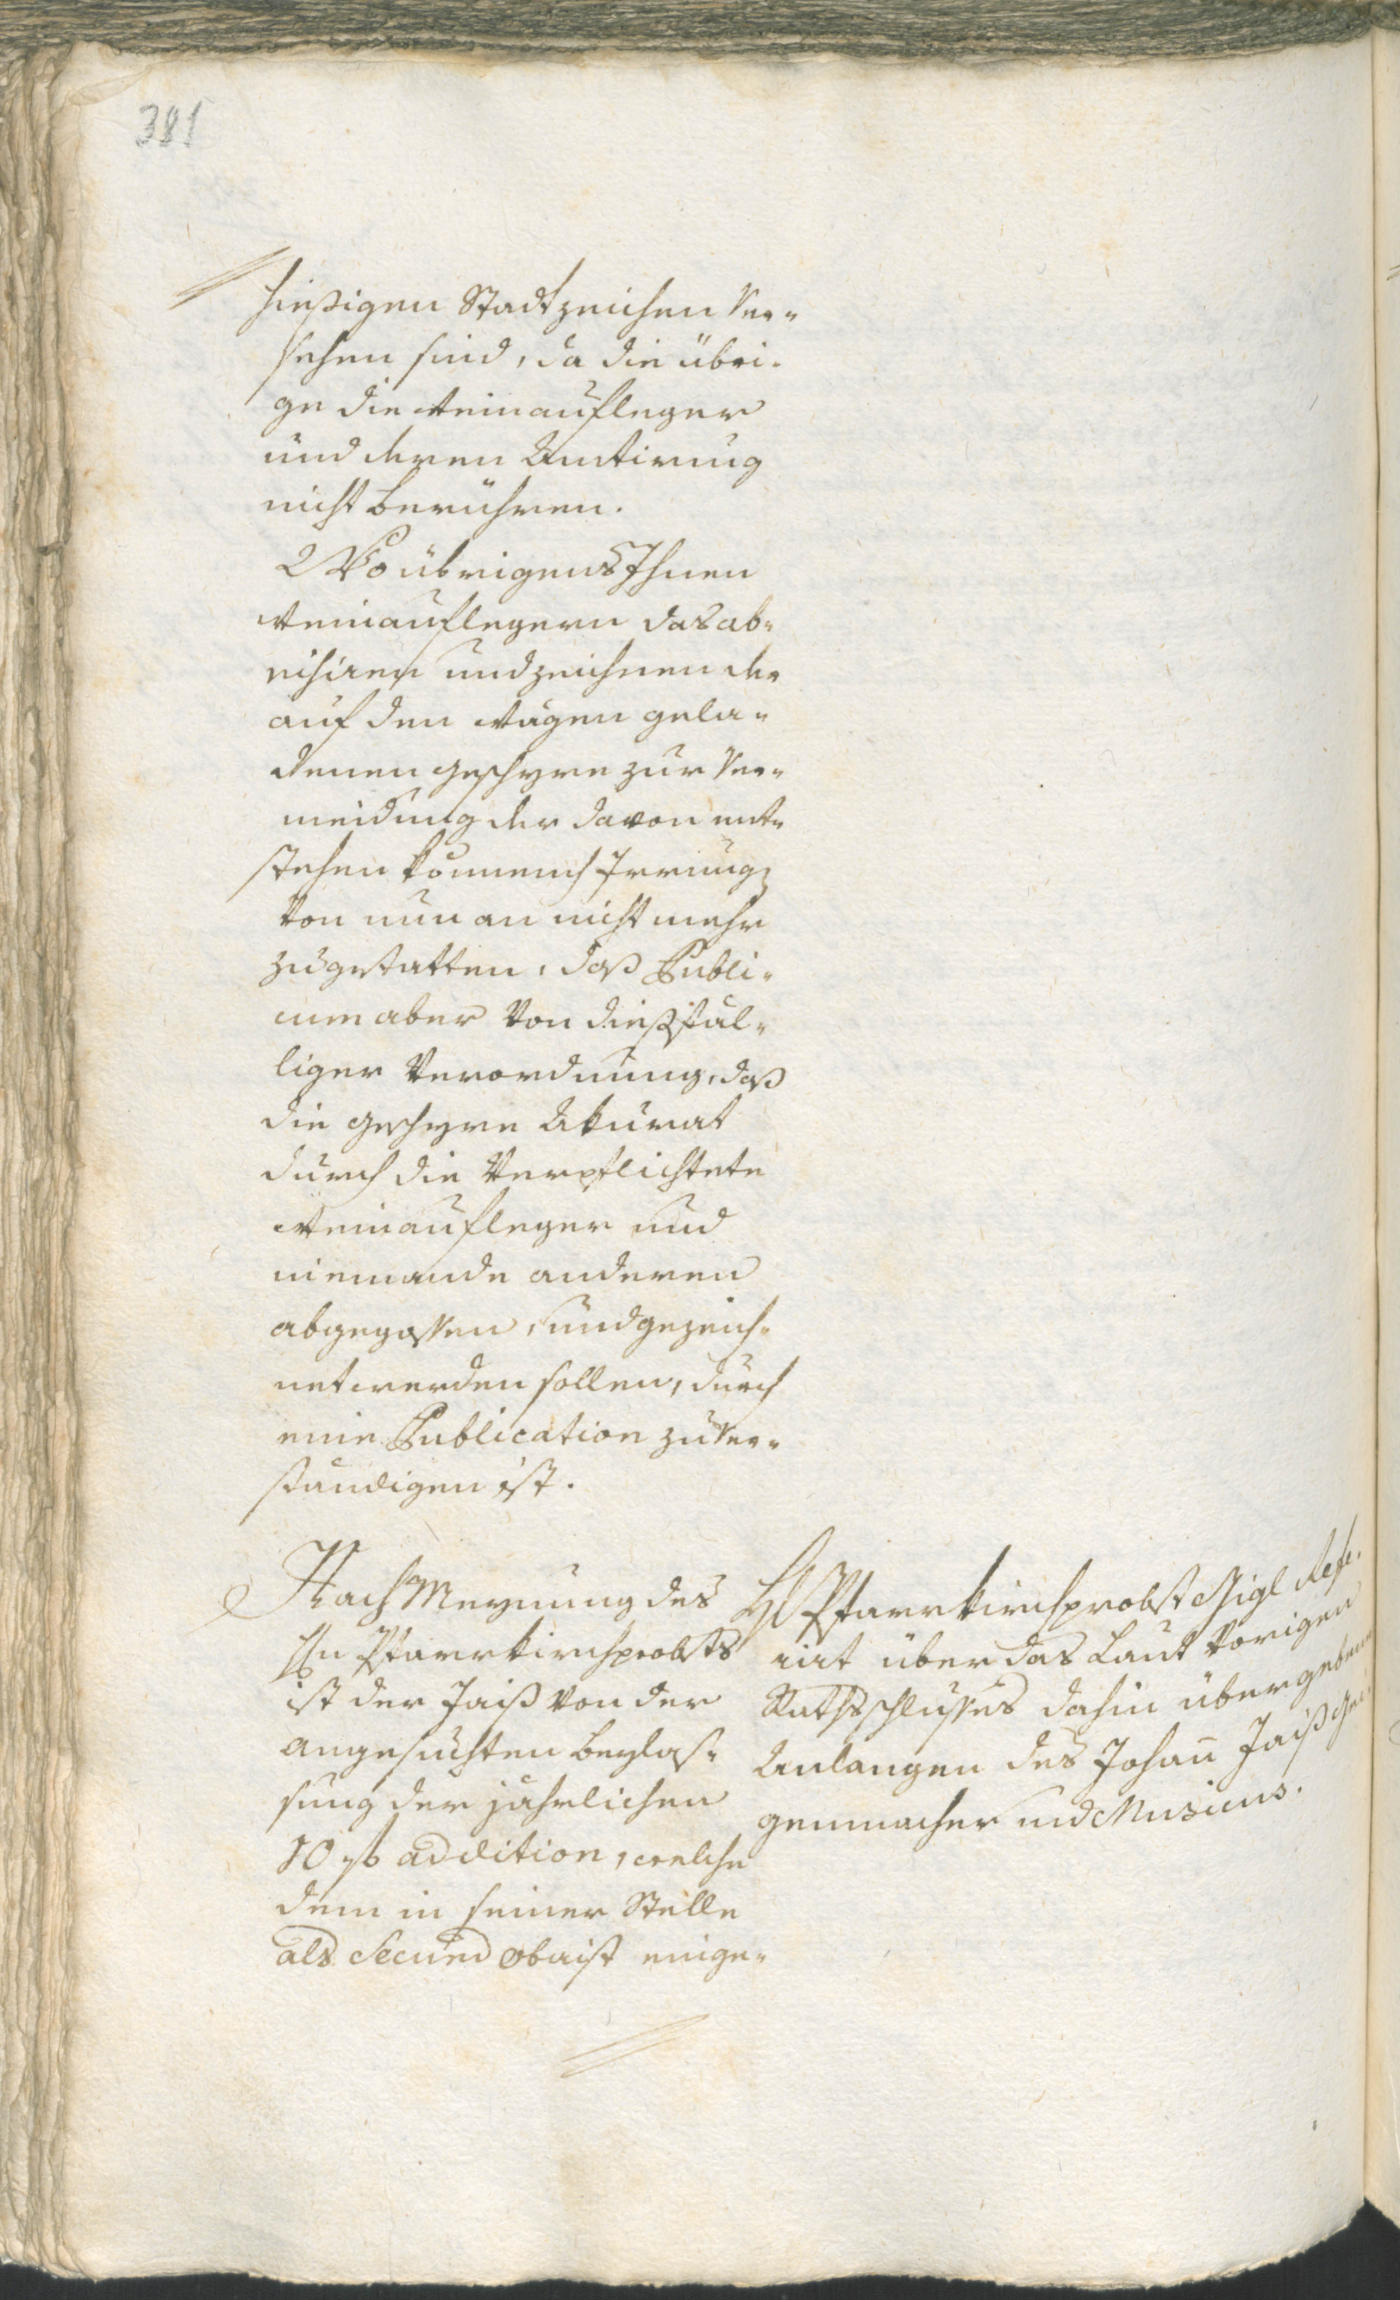 381
hießigen Stadtzeichen ver-
sehen sind, da die übri-
ge die Weinaufleger
und deren Amtirung
nicht berühren.
Wo übrigens Ihnen
Weinauflegern das ab-
visiren und zeichnen der
auf den Wägen gela-
denen geschyrre zur Ver-
meidung der davon ent-
stehen könnend Irrung
von nun an nicht mehr
zugestatten, daß Publi-
cum aber von dießfäl-
liger Verordnung, daß
die geschyrre Akurat
durch die Verpflichtete
Weinaufleger und
niemande anderen
abgegossen, und gezeich-
net werden sollen, durch
eine Publication zuver-
ständigen ist.
Nach Meynung des
Hn Pfarrkirchprobsts
ist der Jaiß von der
angesuchten beylas-
sung der jährlichen
10 f addition, welche
dem in seiner Stelle
als Secund obaist einge-
H Pfarrkirchprobst Gigl Refe-
rirt über das Laut vorigen
Rathsschlusses dahin übergebene
Anlangen des Johann Jaiß Gei-
genmacher und Musicus.